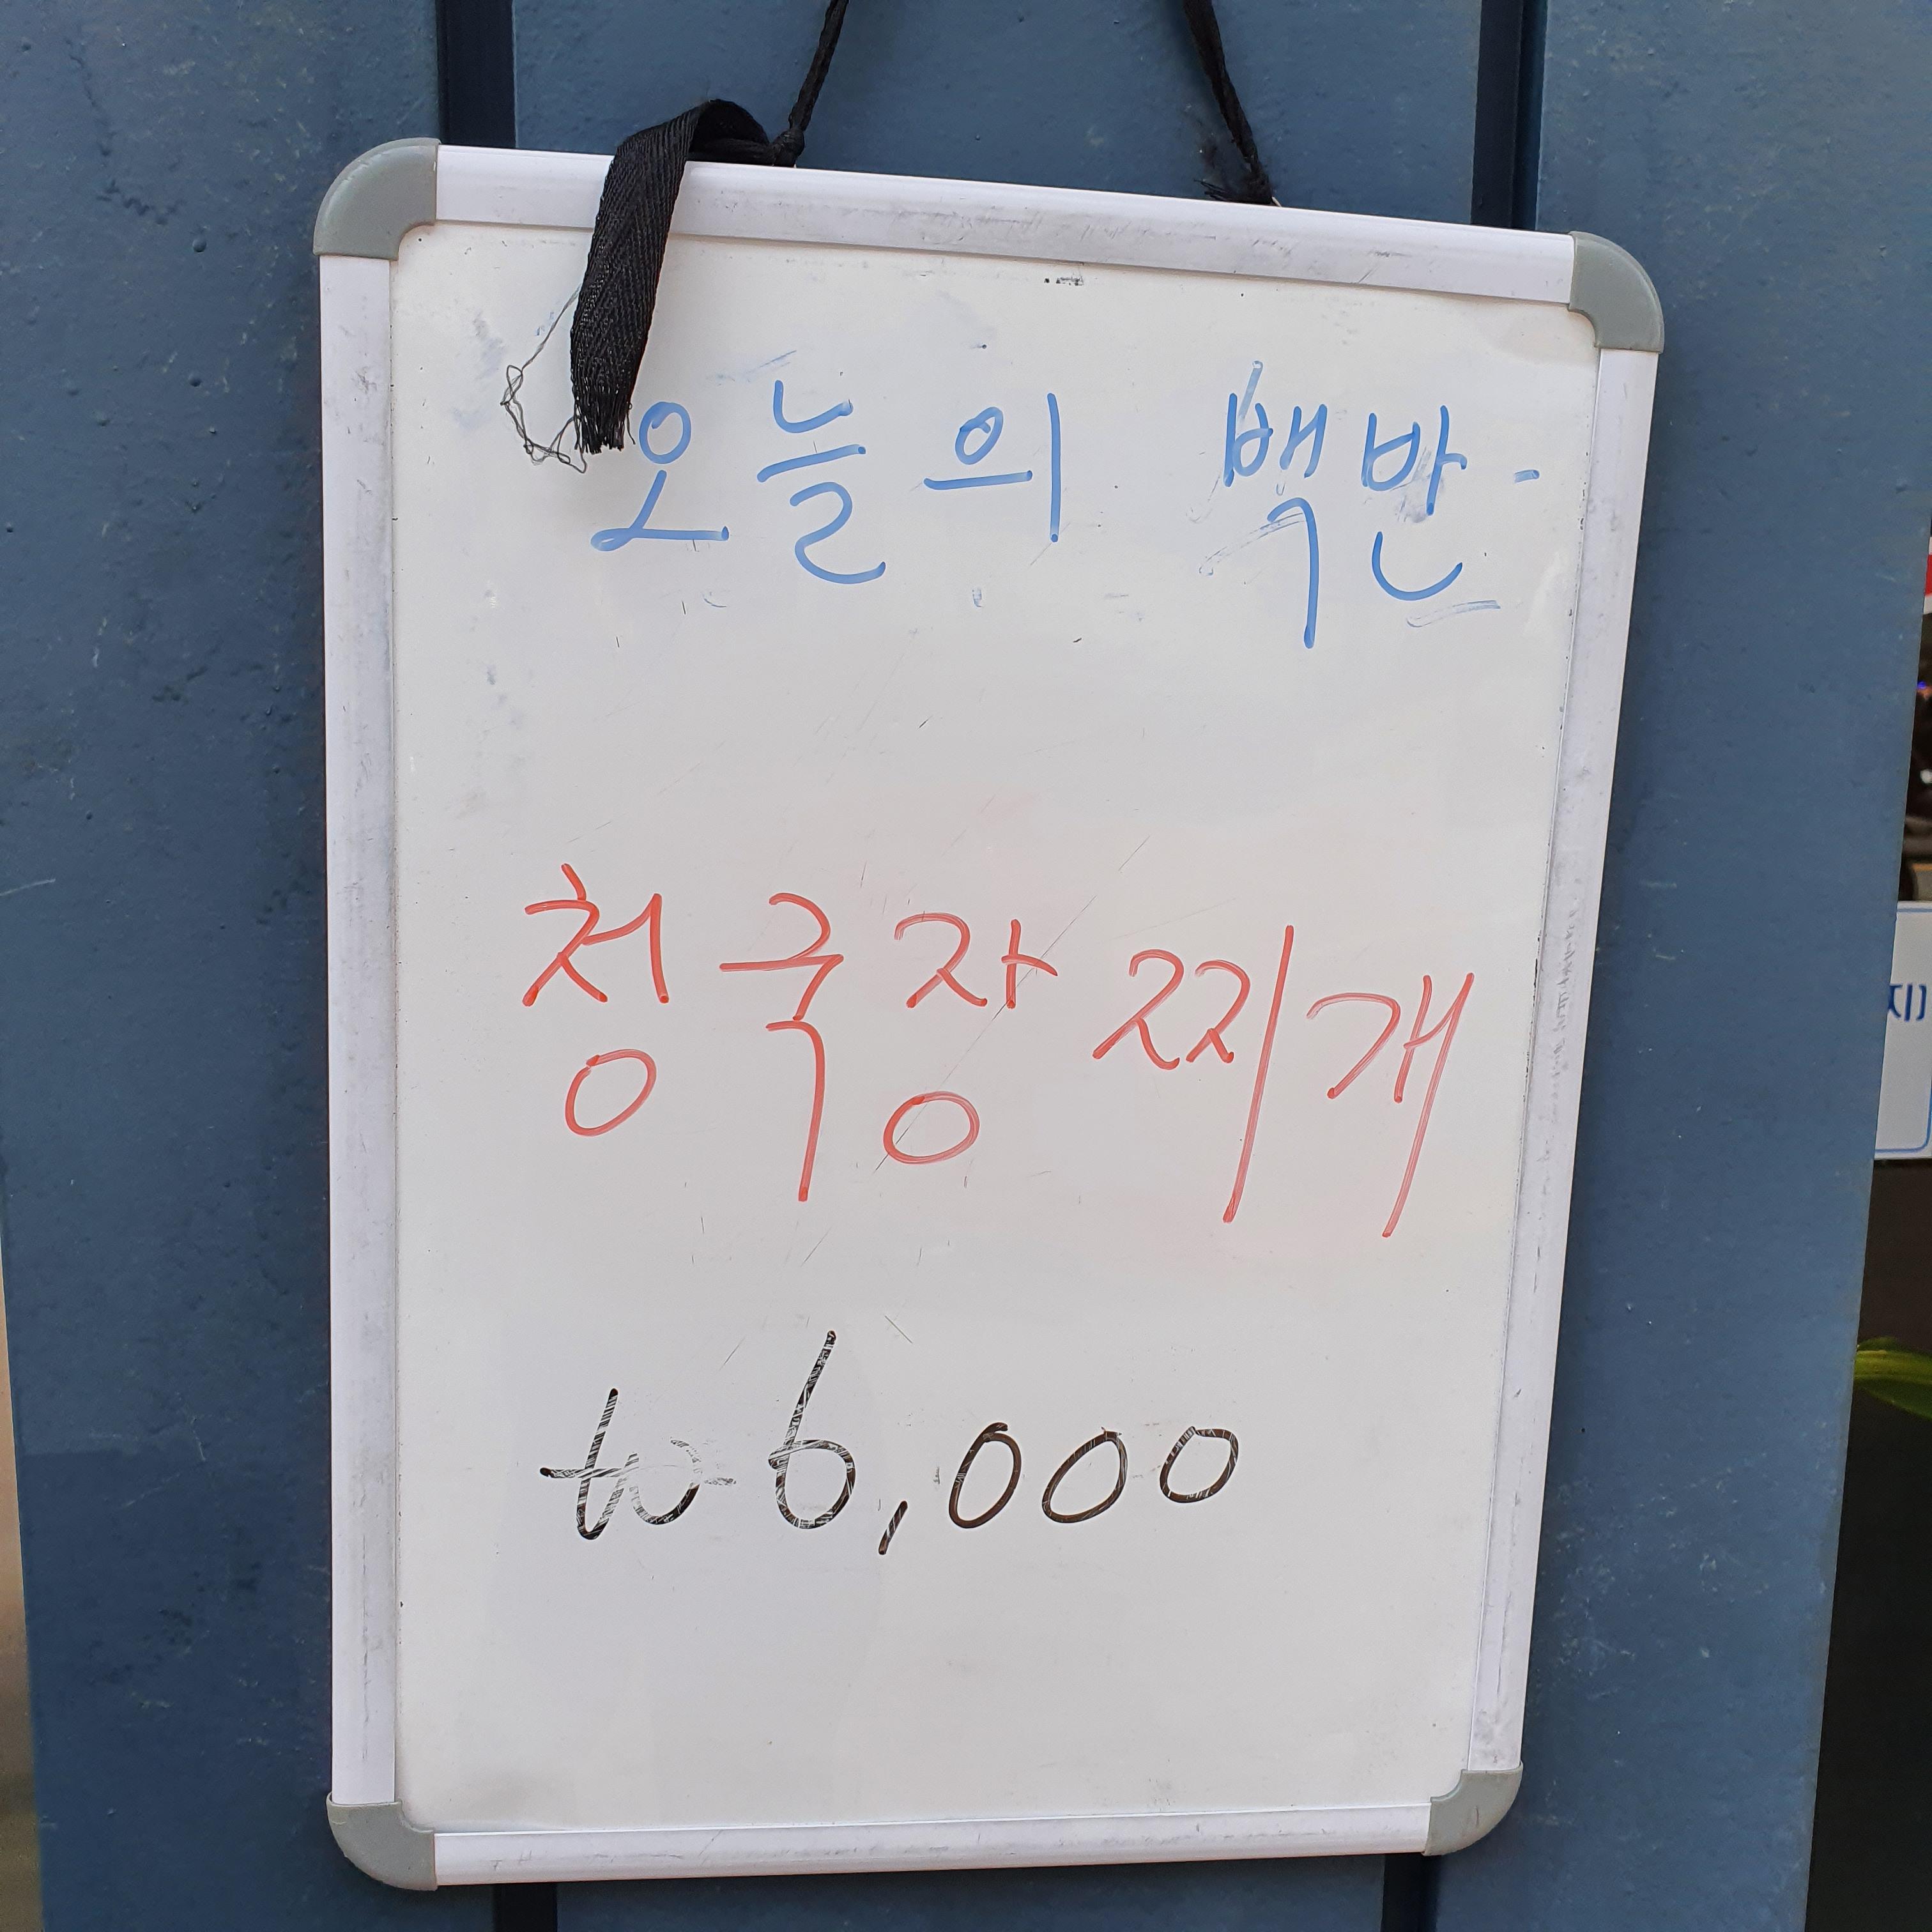 오늘의 백반
청국장 찌개
₩6,000